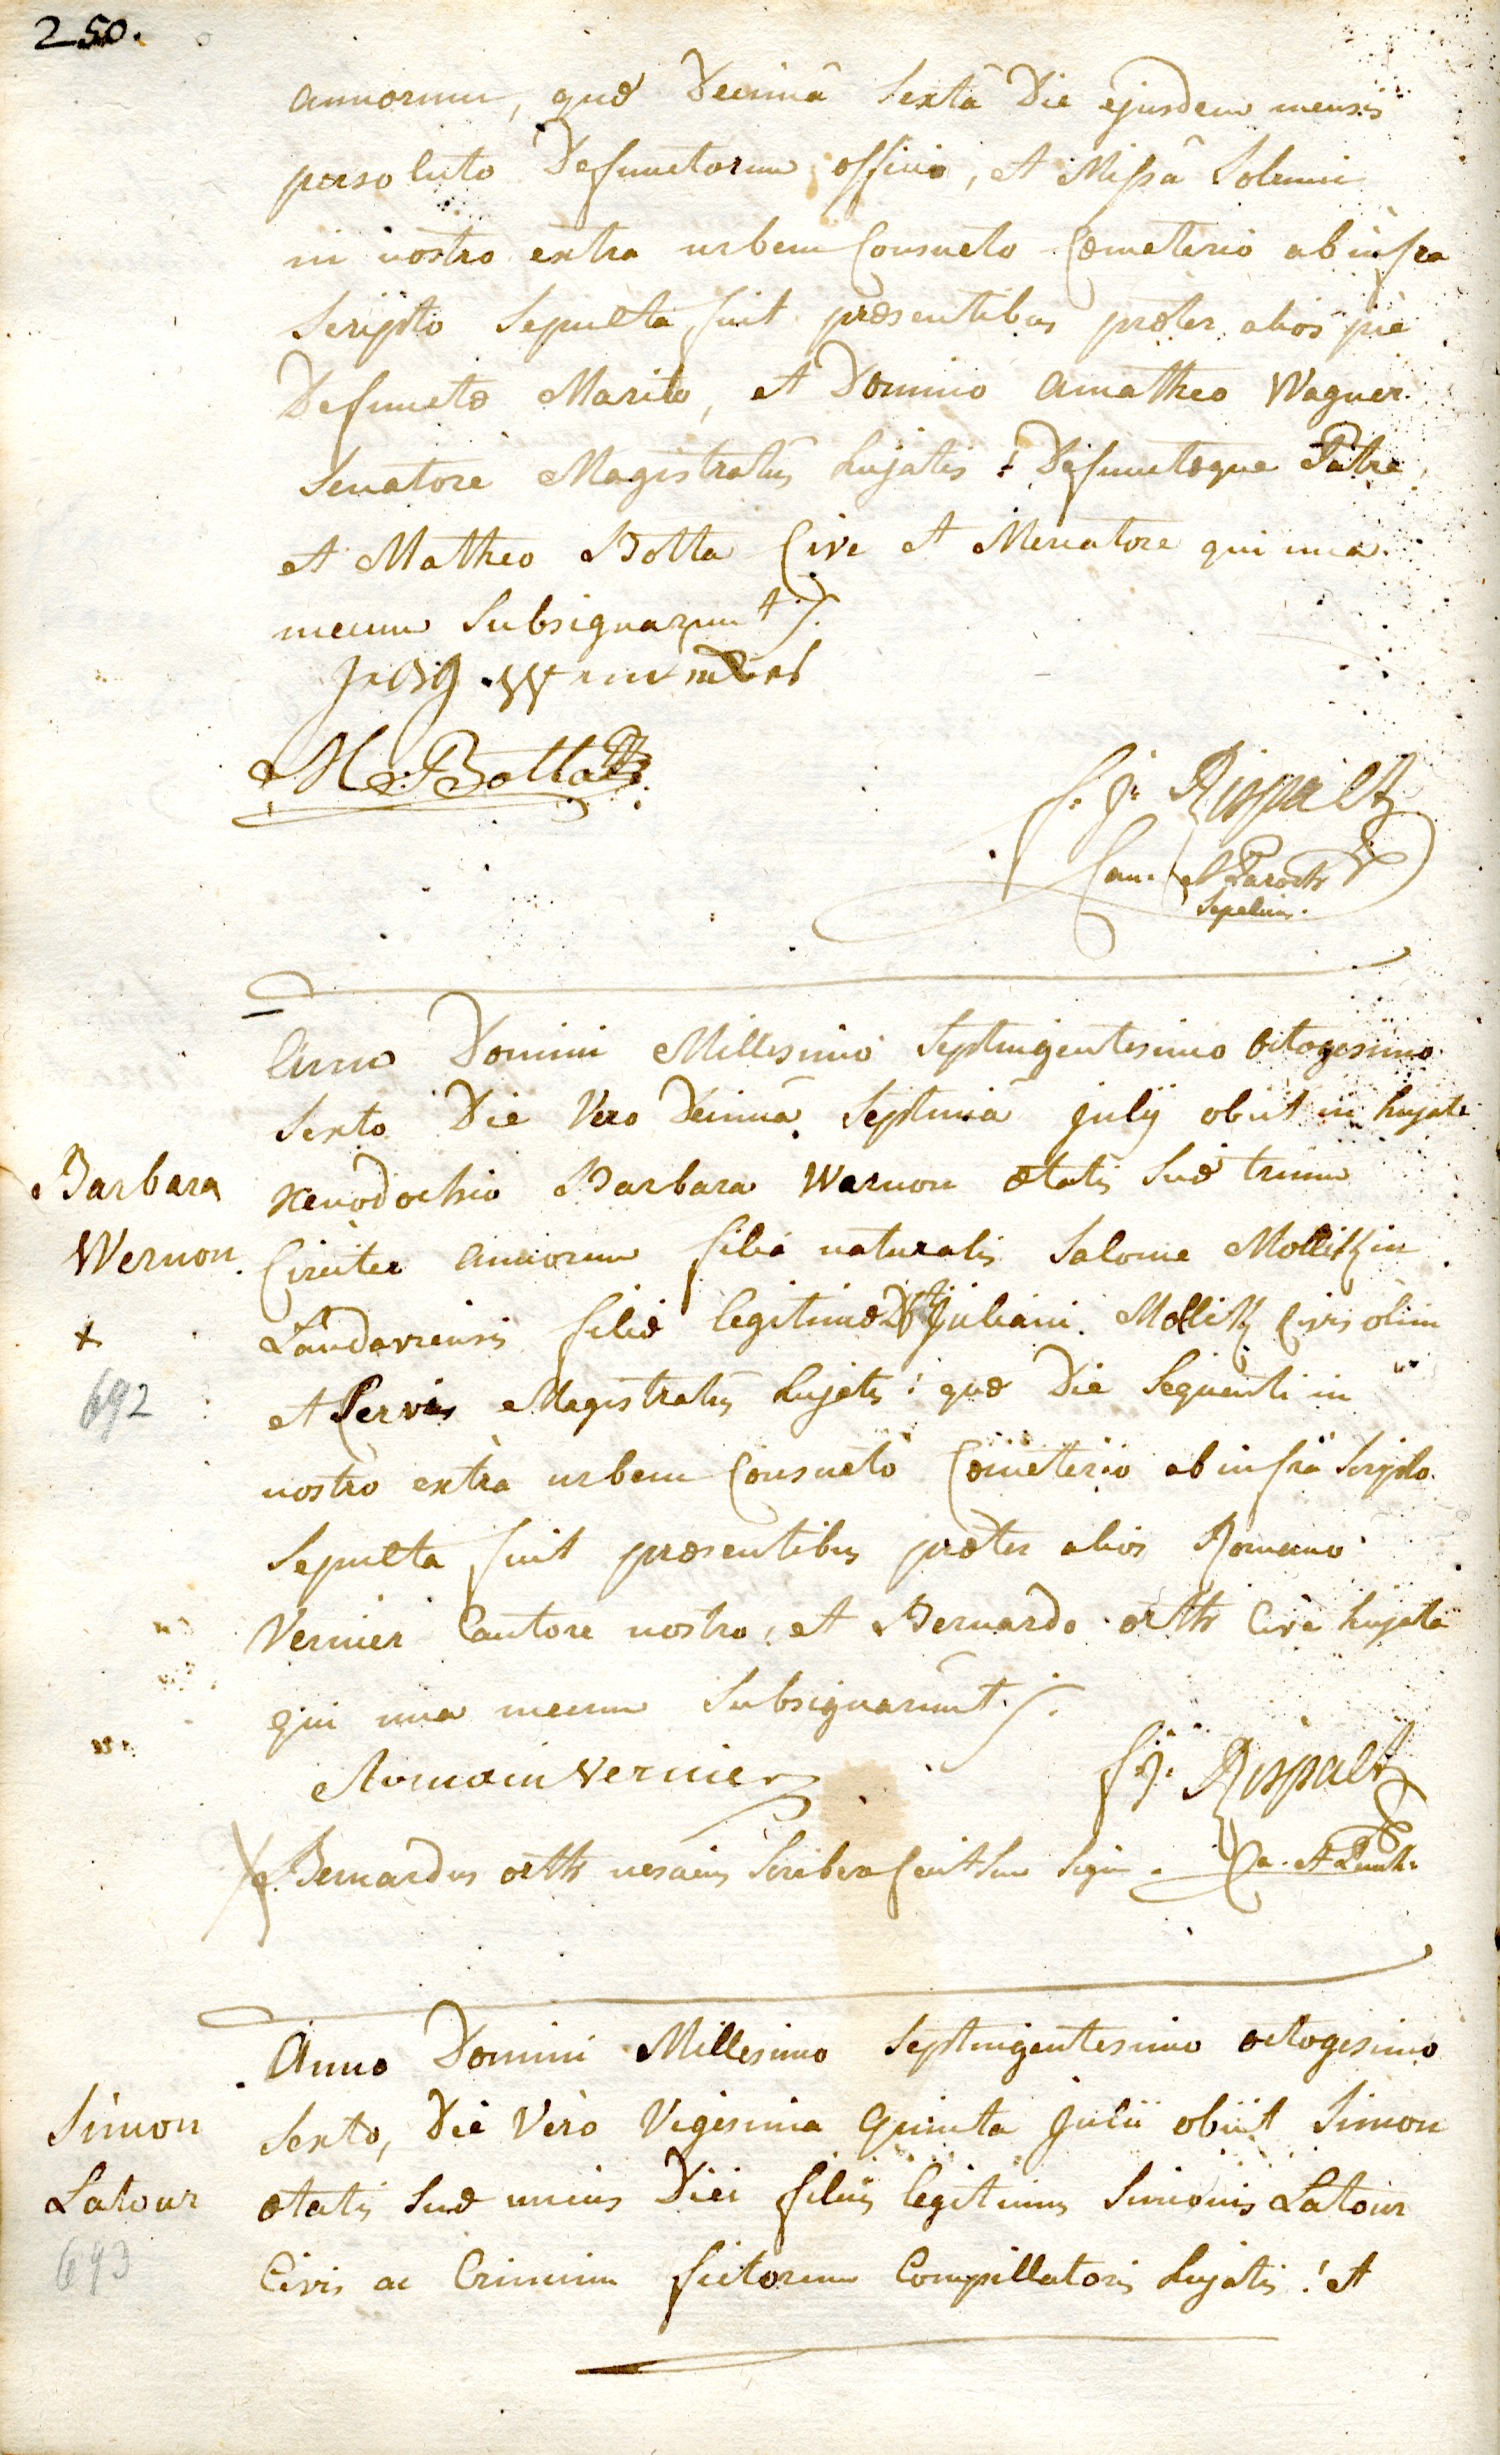 250.
annorum, quæ Decimâ Sextâ Die ejusdem mensis
persoluto Defunctorum officio, et Missâ Solemni
in nostro extra urbem Consueto Cœmeterio ab infra
Scripto Sepulta fuit præsentibus præter alios piè
Defunctæ Marito, et Domino Amatheo Wagner
Senatore Magistratûs hujatis : Defunctæque Patre
et Matheo Botta Cive et Mercatore qui una
mecum Subsignarunt ./.
M: Botta
f. j. Rispalt
Can. et Paroch
Sepeliens.
Anno Domini Millesimo Septingentesimo octogesimo
Sexto Die Vero Decimâ Septimâ julij obiit in hujate
Barbara
Wernon.
+
692
Xenodochio Barbara Warnon ætatis Suæ trium
Circiter annorum filia naturalis Salome Mollitzin
Landaviensis filiæ legitimæ Dfti juliani Mollitz Civis olim
et Servi Magistratûs hujatis : quæ Die Sequenti in
nostro extra urbem Consueto Cœmeterio ab infra Scripto
Sepulta fuit præsentibus præter alios Romano
Vernier Cantore nostro, et Bernardo orth Cive hujate
qui una mecum Subsignarunt ./.
Romain Vernier
f. j. Rispalt
Bernardus orth nescius Scribere fecit suu Sign. Ca. et Paroch.
Anno Domini Millesimo Septingentesimo octogesimo
Simon
Latour
693
Sexto, Die Verò Vigesima Quinta julii obiit Simon
ætatis Suæ unius Diei filius legitimus Simonis Latour
Civis ac Crinium fictorum Compillatoris hujatis : et